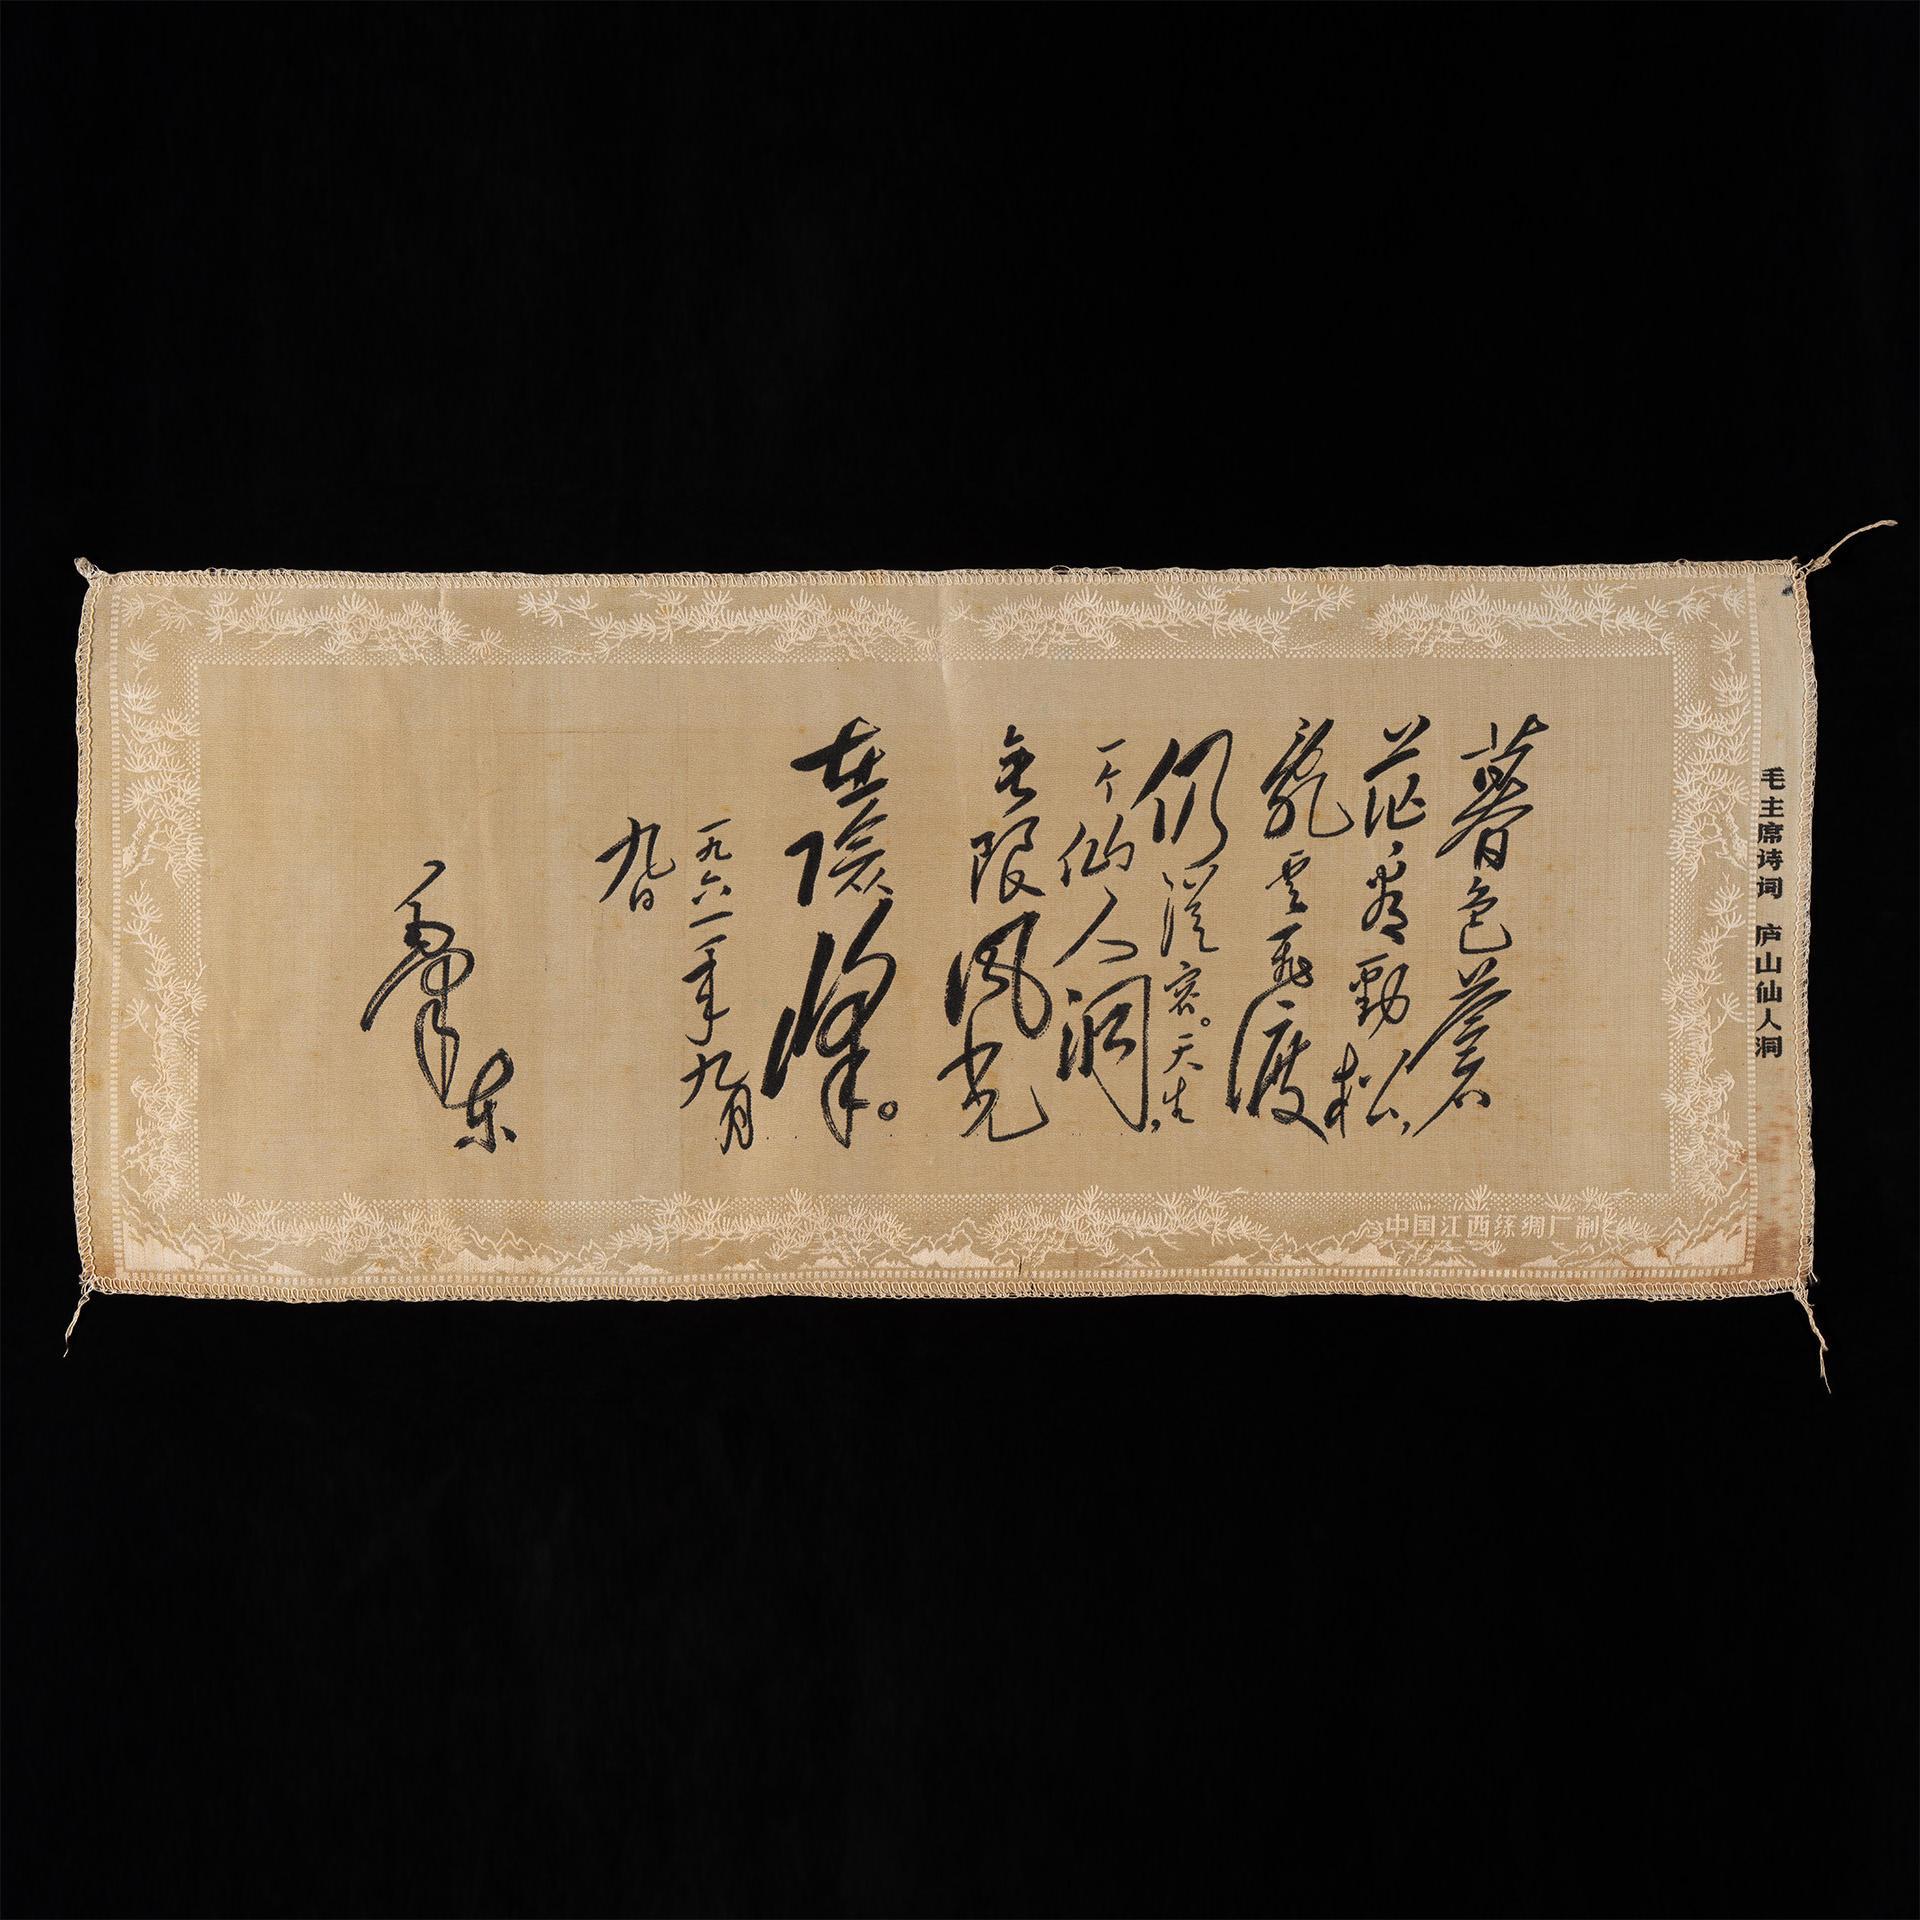 毛主席诗词 庐山仙人洞
暮色苍
茫看劲松，
乱云飞渡
仍从容。天生
一个仙人洞，
无限风光
在险峰。
一九六一年九月
九日
毛泽东
中国江西丝绸厂制